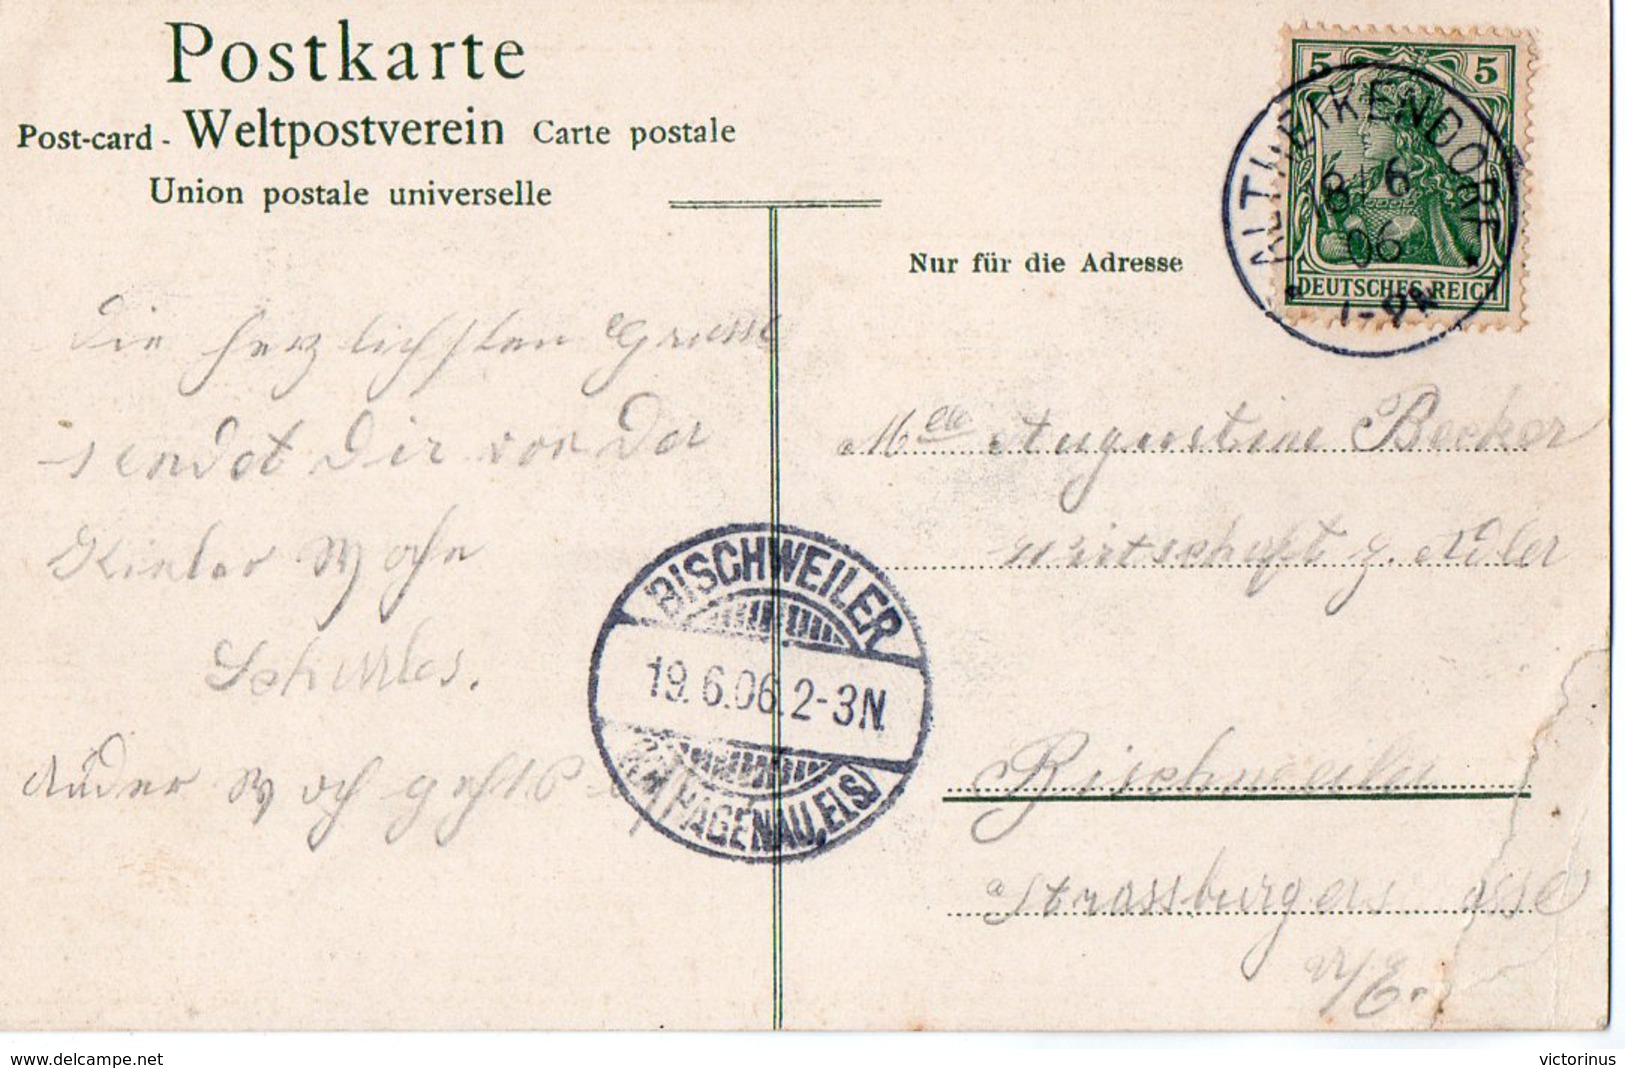 Postkarte
Post-card - Weltpostverein Carte postale
Union postale universelle
Nur für die Adresse
5 5
DEUTSCHES REICH
ALTHEIKENDORF
18 6
06
Die herzlichsten Grüsse
sendet Dir von der
Kieler Woche
M Augustine Becker
wirtschaft z. Adler
Bischweiler
Strassburgers
BISCHWEILER
19.6.06.2-3N.
(HAGENAU, ELS.)
www.delcampe.net
victorinus